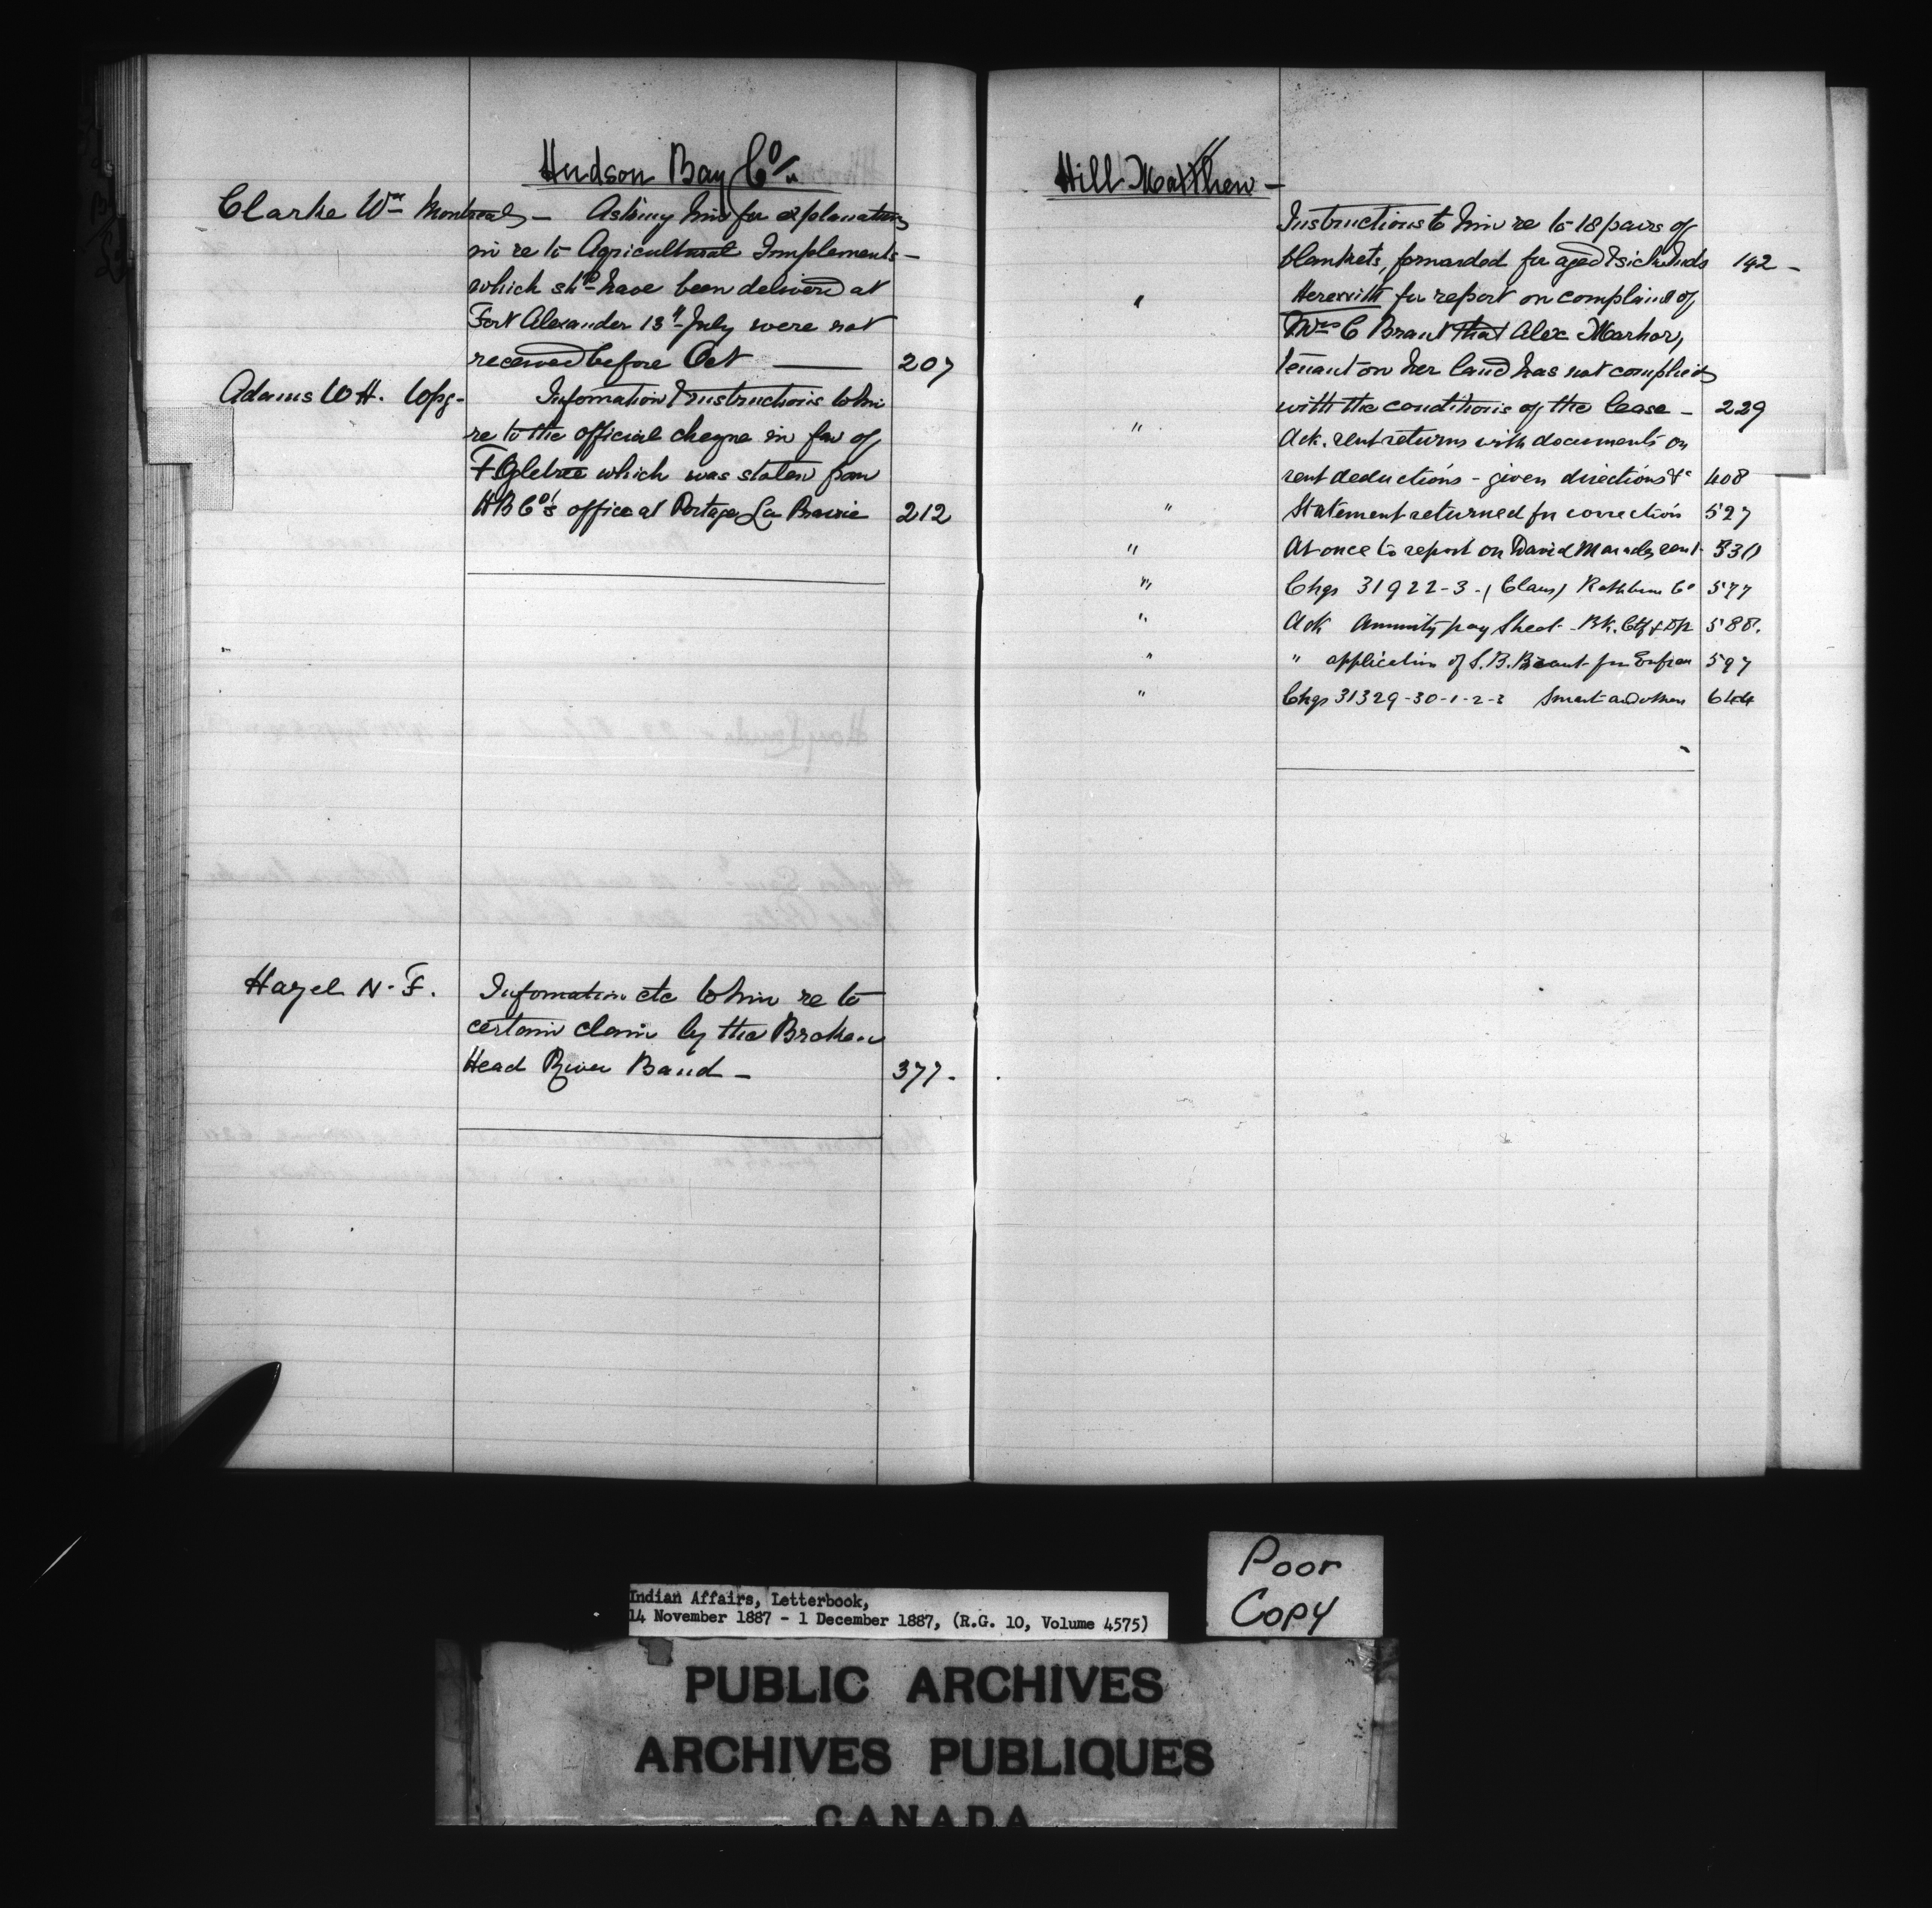 Hudson Bay Co/y
Clarke Wm Montreal - Asking him for explanations
in re to Agricultural Implements -
which shd have been delivered at
Fort Alexander 13th July were not
received before Oct — 207
Adams W H. Wpg - Information & instructions to him
re to the official cheque in fav of
F Ogletree which was stolen from
H B Co's office at Portage La Prairie 212
Hayel N. F. Information etc to him re to
certain claim by the Broken
Head River Band - 377 -
Hill Matthew -
Instructions to him re to 18 pairs of
blankets, forwarded for aged & sick Inds 142 -
" Herewith for report on complaint of
Mrs C Brant that Alex
tenant on her land has not complied
with the conditions of the lease - 229
" Ack. rent returns with documents on
rent deductions - given directions &c 408
" Statement returned for correction 527
" At once to report on David rent - 530
" Chqs 31922-3 - (Claus) Rathbun Co 577
" Ack Annuity pay Sheet - Bk. Ctf & 588.
" " application of S. B. Brant for Enfran 597
" Chqs 31329-30-1-2-3 Smart and others 644
Poor
Copy
Indian Affairs, Letterbook,
14 November 1887 - 1 December 1887, (R.G. 10, Volume 4575)
PUBLIC ARCHIVES
ARCHIVES PUBLIQUES
CANADA